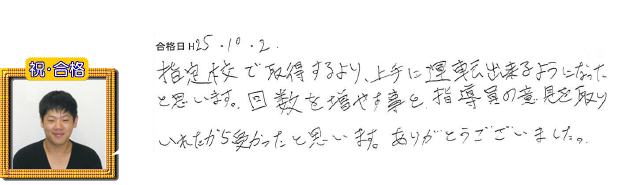 祝・合格
合格日 H25・10・2.
指定校で取得するより、上手に運転出来るようになった
と思います。回数を増やす事と、指導員の意見を取り
いれたから受かったと思います。ありがとうございました。